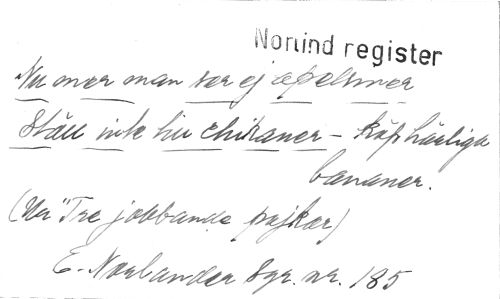 Norlind register
Nu mer man ser ej apelsiner
Ställ inte hin chikaner - köp härliga
bananer.
(Ur "Tre jobbande pojkar)
E. Norlander Sgr. nr. 185